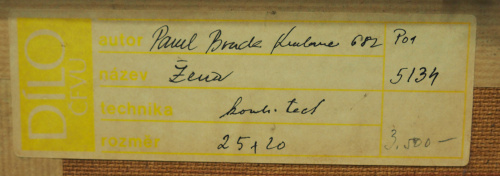 DÍLO
autor Pavel Brada 682 Po1
název Žena 5134
technika komb. tech
rozměr 25 x 20 3.500-